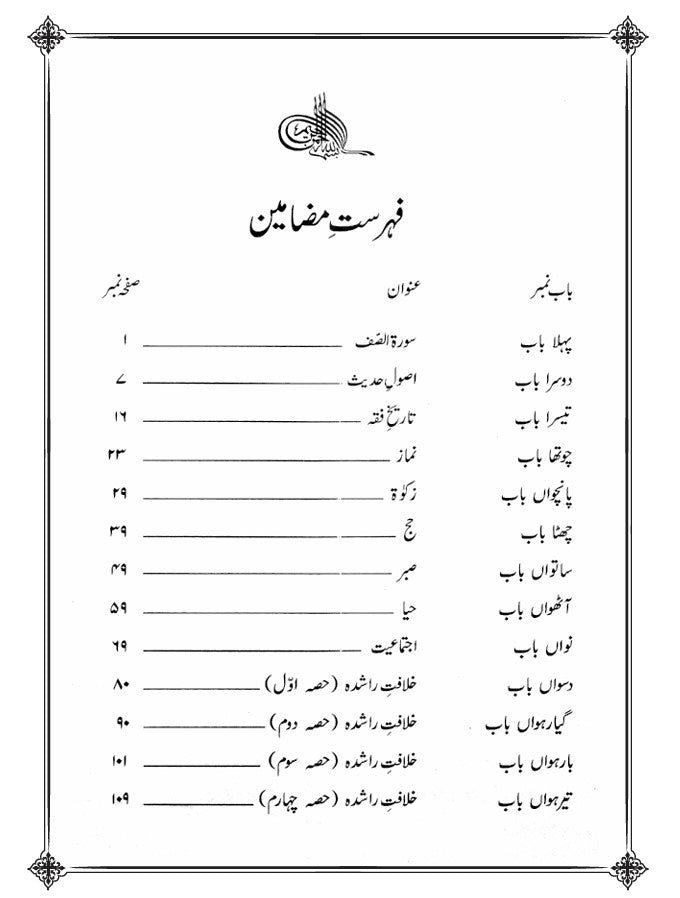 بسم الله الرحمن الرحیم
فہرستِ مضامین
باب نمبر عنوان صفحہ نمبر
پہلا باب سورۃ الصّف ۱
دوسرا باب اصولِ حدیث ۷
تیسرا باب تاریخِ فقہ ۱۶
چوتھا باب نماز ۲۳
پانچواں باب زکوٰۃ ۲۹
چھٹا باب حج ۳۹
ساتواں باب صبر ۴۹
آٹھواں باب حیا ۵۹
نواں باب اجتماعیت ۶۹
دسواں باب خلافتِ راشدہ (حصہ اوّل) ۸۰
گیارہواں باب خلافتِ راشدہ (حصہ دوم) ۹۰
بارہواں باب خلافتِ راشدہ (حصہ سوم) ۱۰۱
تیرہواں باب خلافتِ راشدہ (حصہ چہارم) ۱۰۹